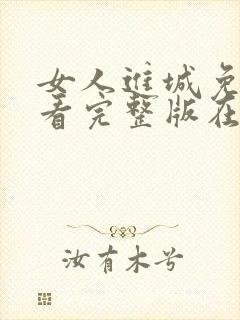 女人进城免
看完整版在
汝有木兮